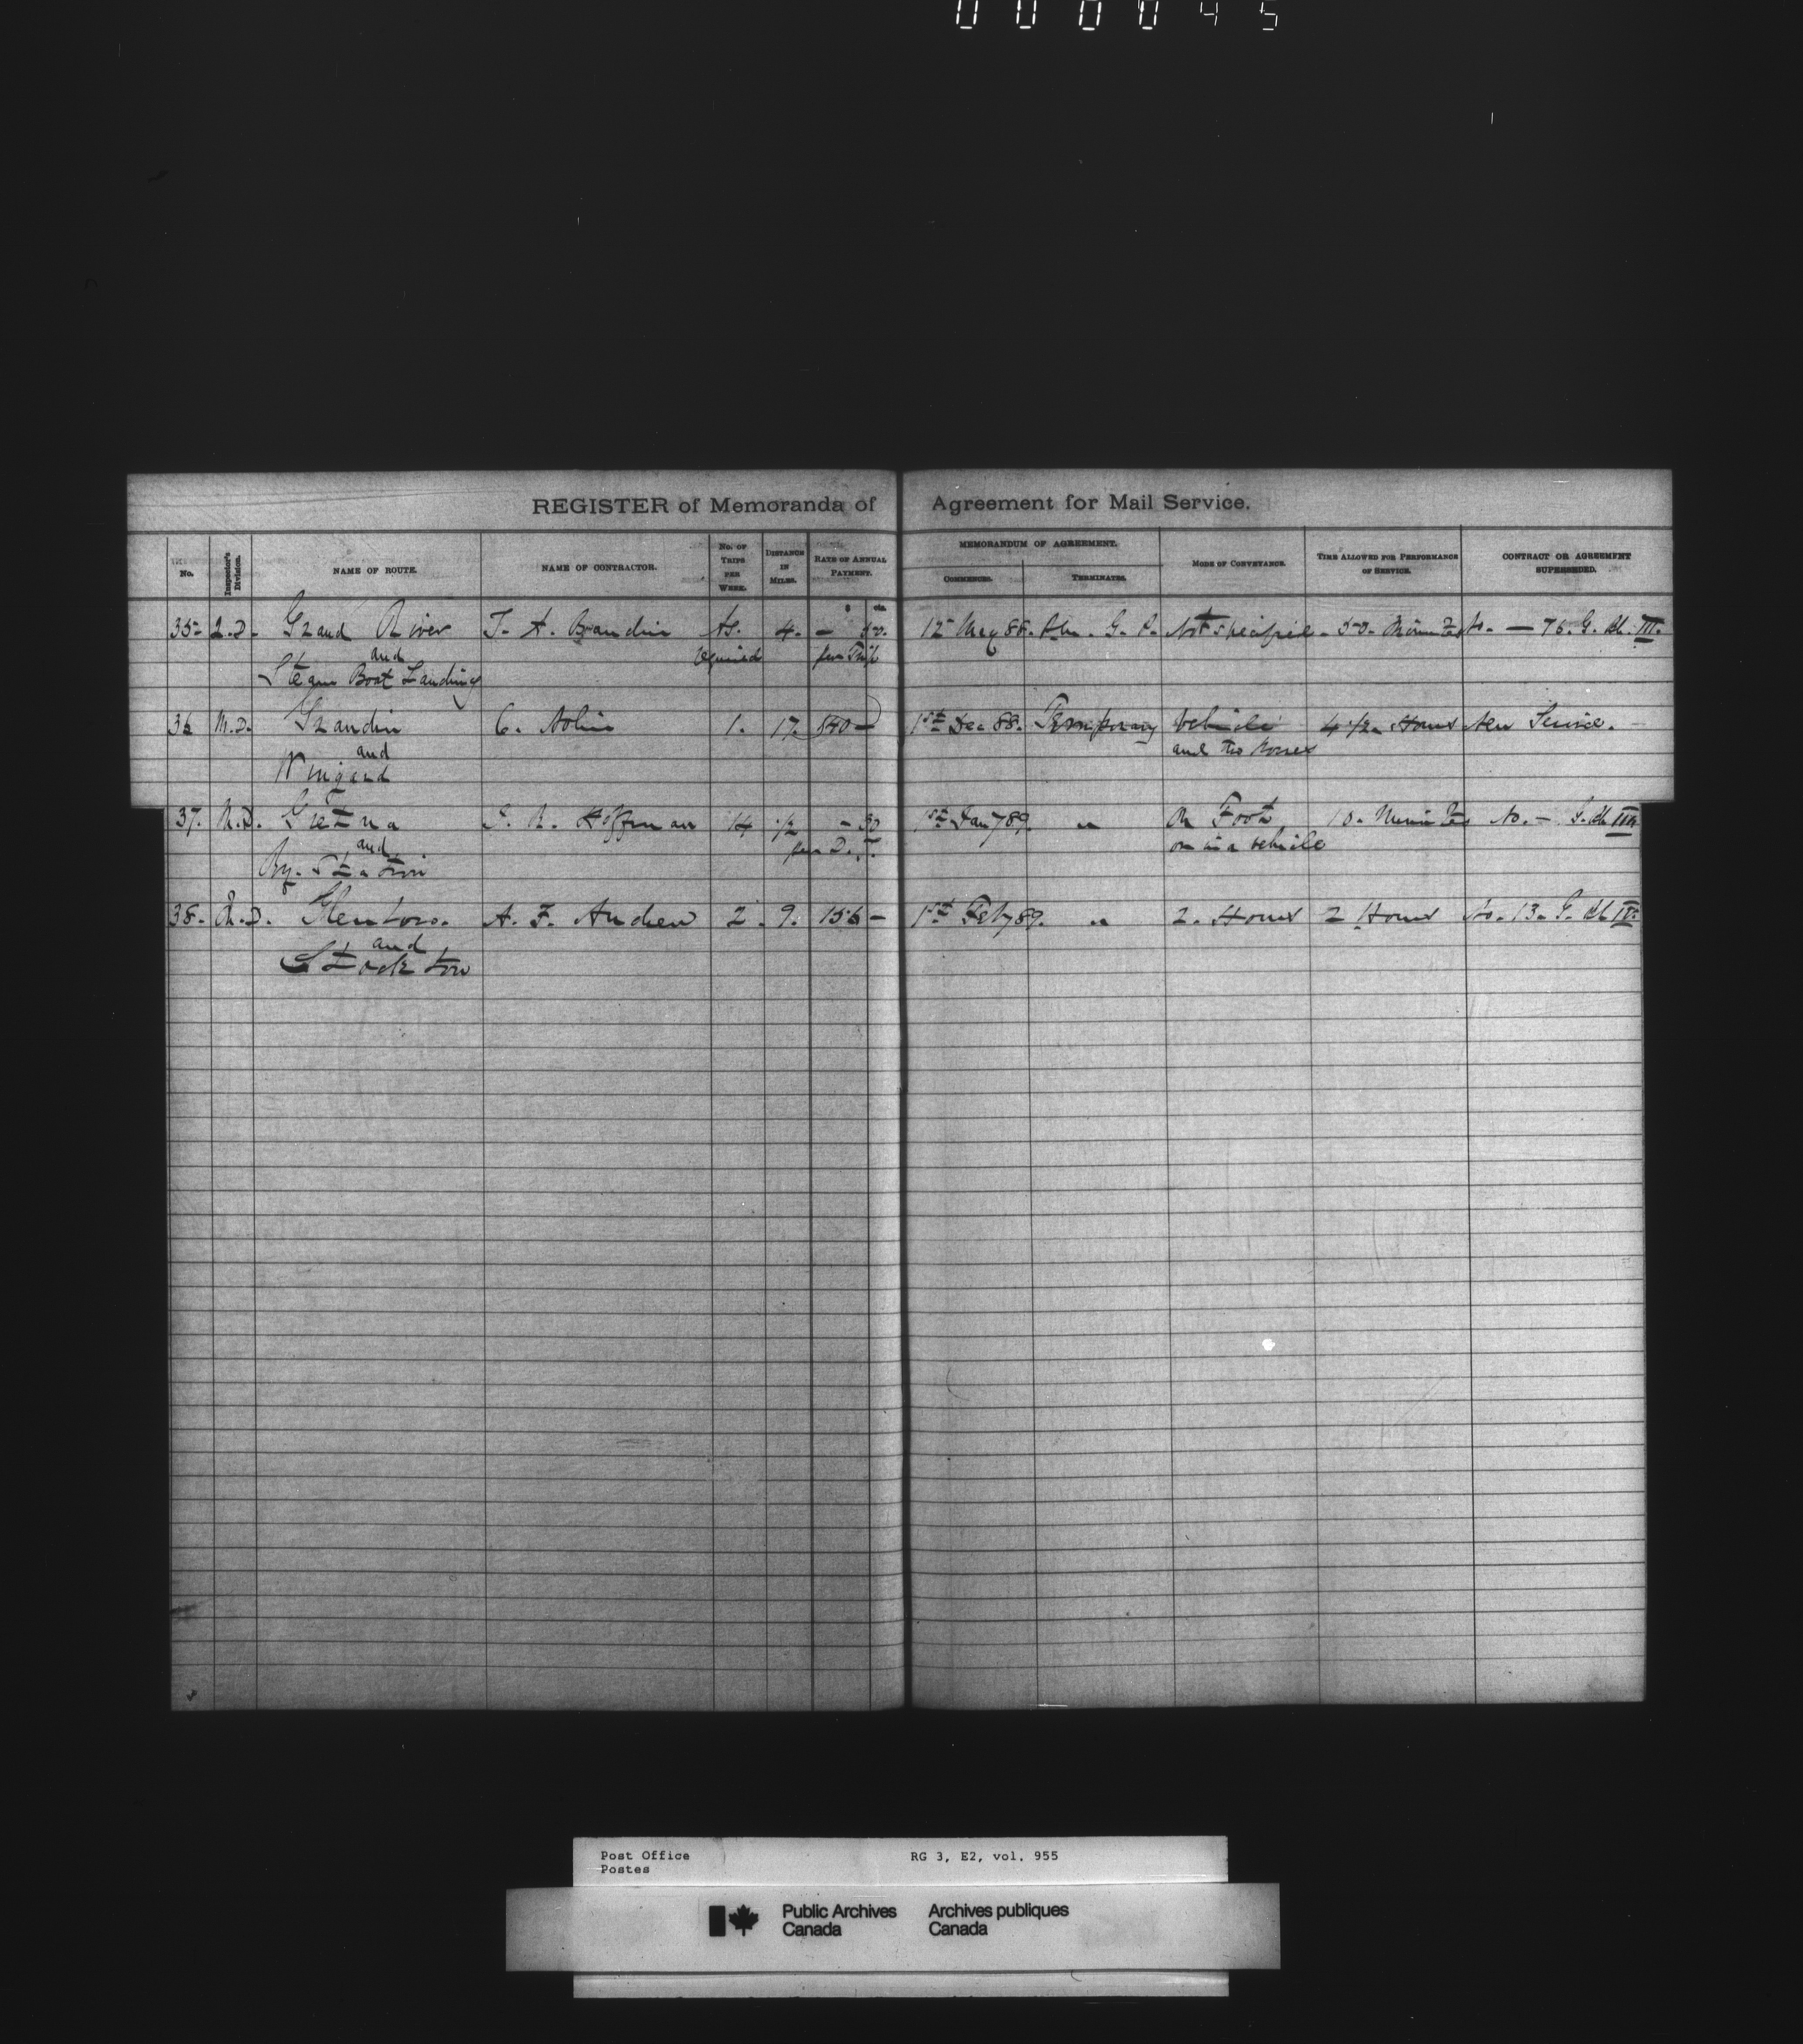 000045
REGISTER of Memoranda of Agreement for Mail Service.
No. Inspector's Division. NAME OF ROUTE. NAME OF CONTRACTOR. No. OF TRIPS PER WEEK. DISTANCE IN MILES. RATE OF ANNUAL PAYMENT. MEMORANDUM OF AGREEMENT. COMMENCES. TERMINATES. MODE OF CONVEYANCE. TIME ALLOWED FOR PERFORMANCE OF SERVICE. CONTRACT OR AGREEMENT SUPERSEDED.
$ cts.
35 Q.D. Grand River J. A. Beaudin As. 4. - 50. 12 May 88. P.M. G. P. Not specified - 50. Minutes No. — 76. G. Bk. III.
and required per Trip
Steam Boat Landing
36 M.D. Grandin C. Nolin 1. 17. - 1st Dec 88. Temporary Vehicle 4 1/2 Hours New Service.
and and two horses
Wingard
37. M.D. Gretna J. R. Hoffman 14 1/2 - 30 1st Jany 89. " On Foot 10. Minutes No. - G. Bk III
and per D. T. or in a vehicle
Ry. Station
38. M.D. Glenboro. A. F. Andrew 2. 9. 156 - 1st Feby 89. " 2. Hours 2 Hours No. 13. G. Bk IV.
and
Stockton
Post Office RG 3, E2, vol. 955
Postes
Public Archives Archives publiques
Canada Canada